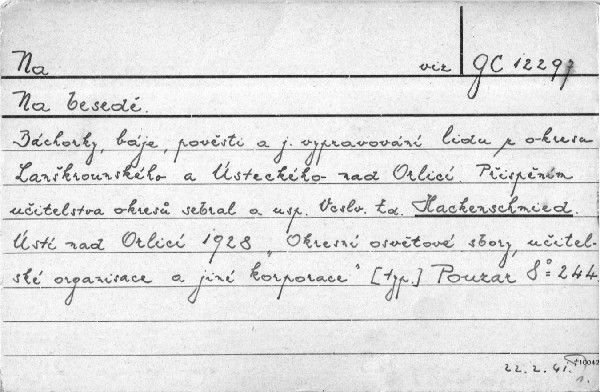 Na viz GC 12297
Na besedě.
Báchorky, báje, pověsti a j. vypravování lidu z okresu
Lanškrounského a Ústeckého nad Orlicí. Přispěním
učitelstva okresů sebral a usp. Vcslv. Hackenschmied.
Ústí nad Orlicí 1928 „Okresní osvětové sbory, učitel-
ské organisace a jiné korporace" [typ.] Pouzar 8° 244.
22. 2. 41.